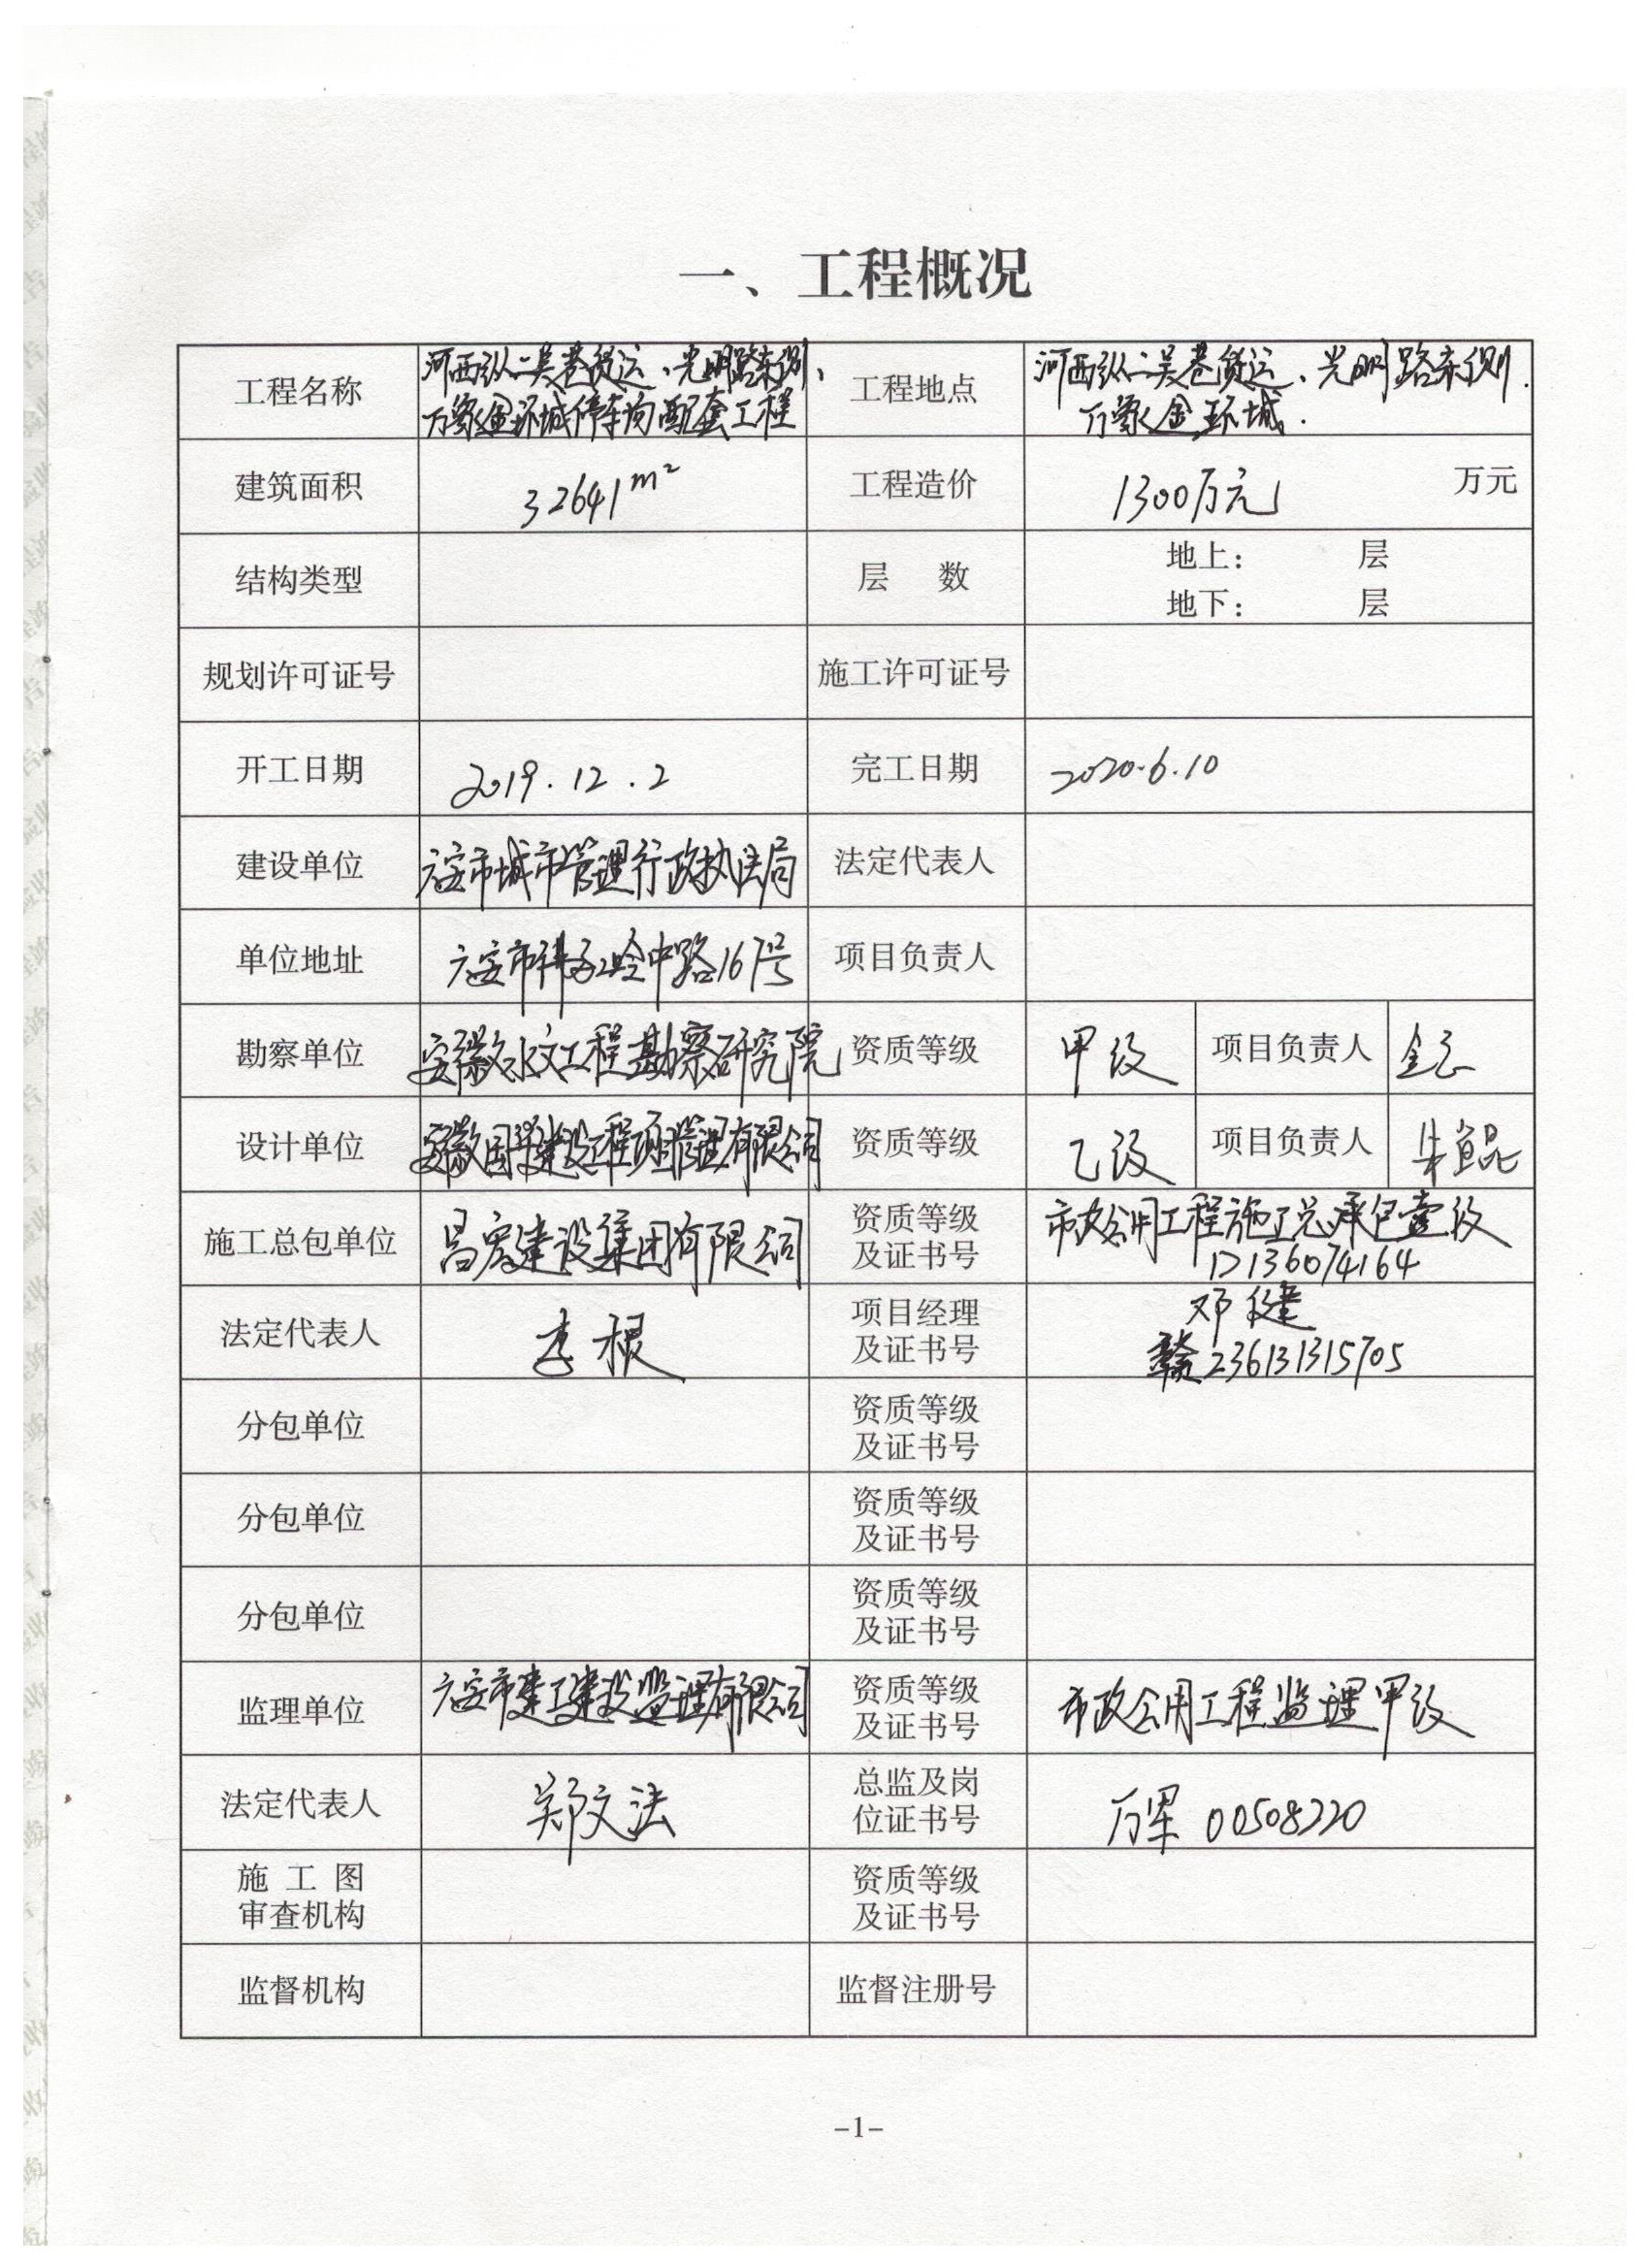 一、工程概况
工程名称 河西纵二吴巷货运、光明路东侧、万象金环城停车场配套工程 工程地点 河西纵二吴巷货运、光明路东侧.万象金环城.
建筑面积 32641m² 工程造价 1300万元 万元
结构类型 层 数 地上: 层
地下: 层
规划许可证号 施工许可证号
开工日期 2019.12.2 完工日期 2020.6.10
建设单位 六安市城市管理行政执法局 法定代表人
单位地址 六安市梅山中路167号 项目负责人
勘察单位 安徽水文工程勘察研究院 资质等级 甲级 项目负责人 金云
设计单位 安徽国华建设工程项目管理有限公司 资质等级 乙级 项目负责人 朱鲲
施工总包单位 昌宏建设集团有限公司 资质等级及证书号 市政公用工程施工总承包壹级
D136074164
法定代表人 李根 项目经理及证书号 邓健
赣236131315705
分包单位 资质等级及证书号
分包单位 资质等级及证书号
分包单位 资质等级及证书号
监理单位 六安市建工建设监理有限公司 资质等级及证书号 市政公用工程监理甲级
法定代表人 郑文法 总监及岗位证书号 万军 00508220
施工图审查机构 资质等级及证书号
监督机构 监督注册号
-1-